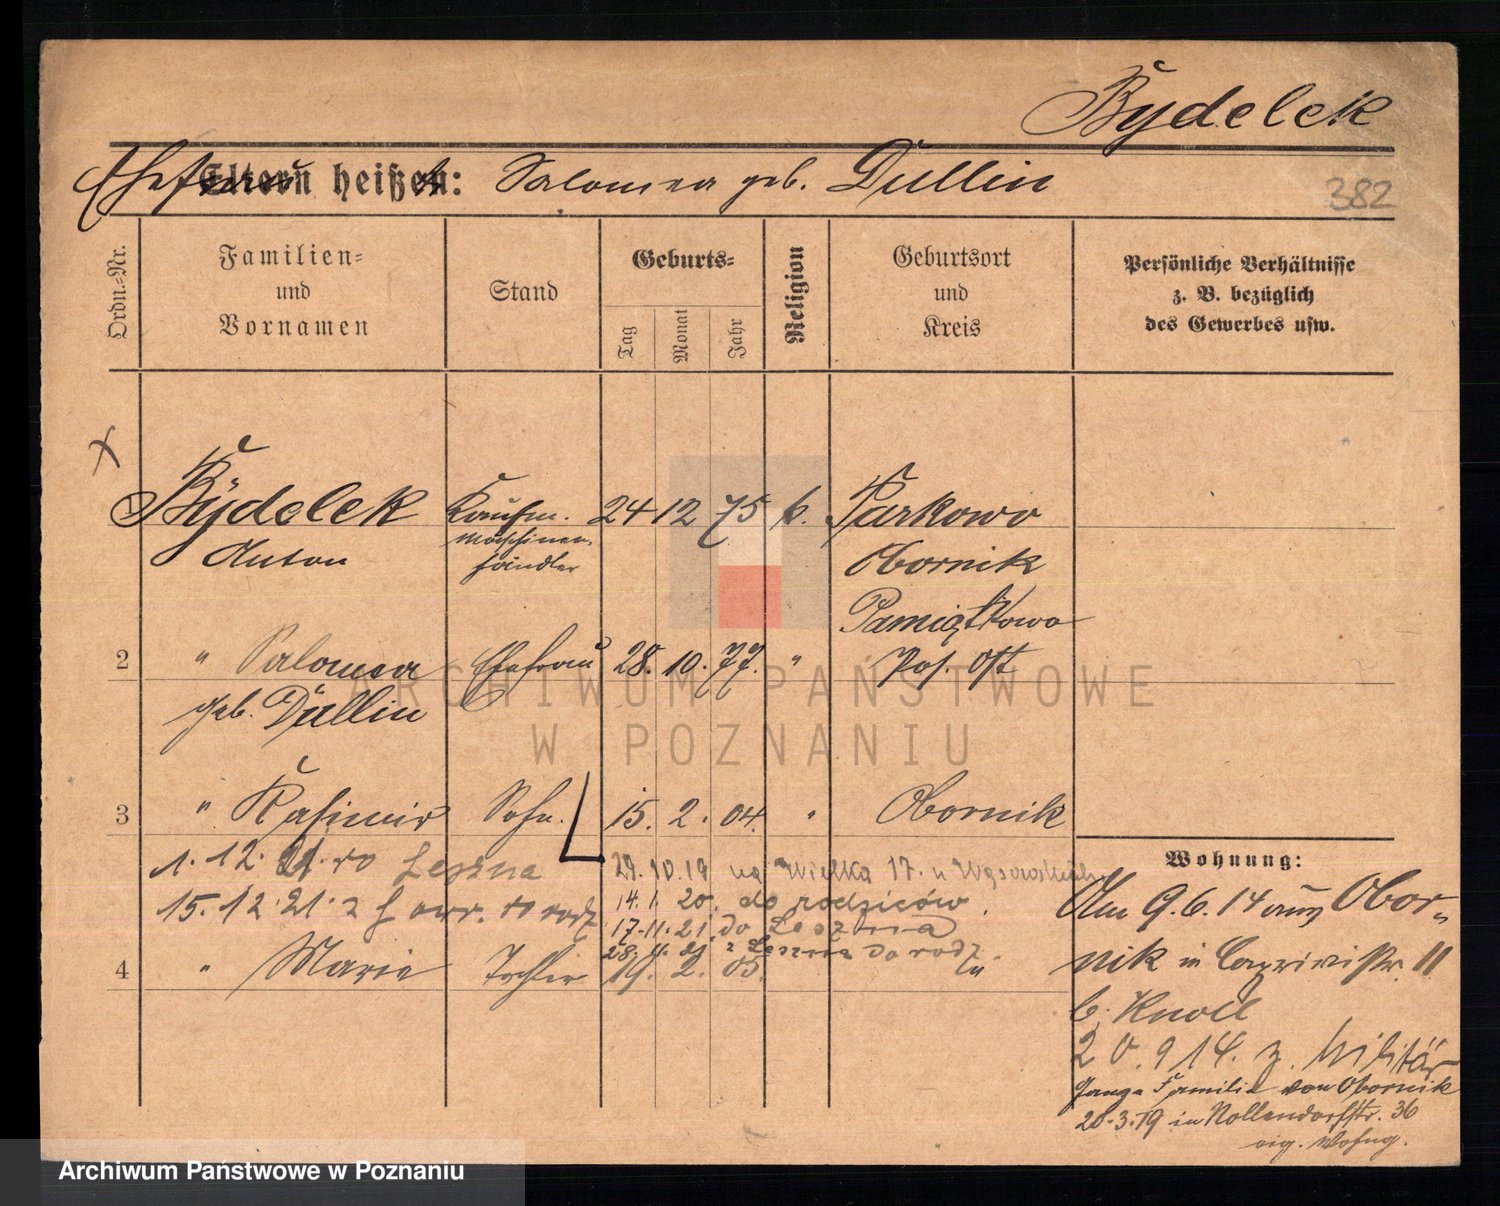 Bydelek
Ehefrau Eltern heißen: Salomea geb. Dullin
382
Ordn.-Nr.
Familien- und Vornamen
Stand
Geburts-
Tag
Monat
Jahr
Religion
Geburtsort und Kreis
Persönliche Verhältnisse
z. B. bezüglich
des Gewerbes usw.
x
1 Bydelek Kaufm. 24 12 75 k. Parkowo
Anton Maschinen händler Obornik
Pamiątkowo
2 " Salomea Ehefrau 28. 10. 77. " Pos. Ost
geb. Dullin
3 " Kasimir Sohn. 15. 2. 04. " Obornik
1. 12. 21. do Leszna
29.10.19 na Wielka 17. u
15. 12. 21. z
14.1.20. do rodziców
17.11.21. do Leszna
28.11.21 z Leszna do rodz.
4 " Marie Tochter 19. 2. 05. "
Wohnung:
Am 9.6.14 aus Obor-
nik in Caprivistr. 11
b. Knoll
20.9 14. z. Militär
Ganze Familie von Obornik
20.3.19 in Nollendorfstr. 36
eig. Wohng.
ARCHIWUM PAŃSTWOWE
W POZNANIU
Archiwum Państwowe w Poznaniu